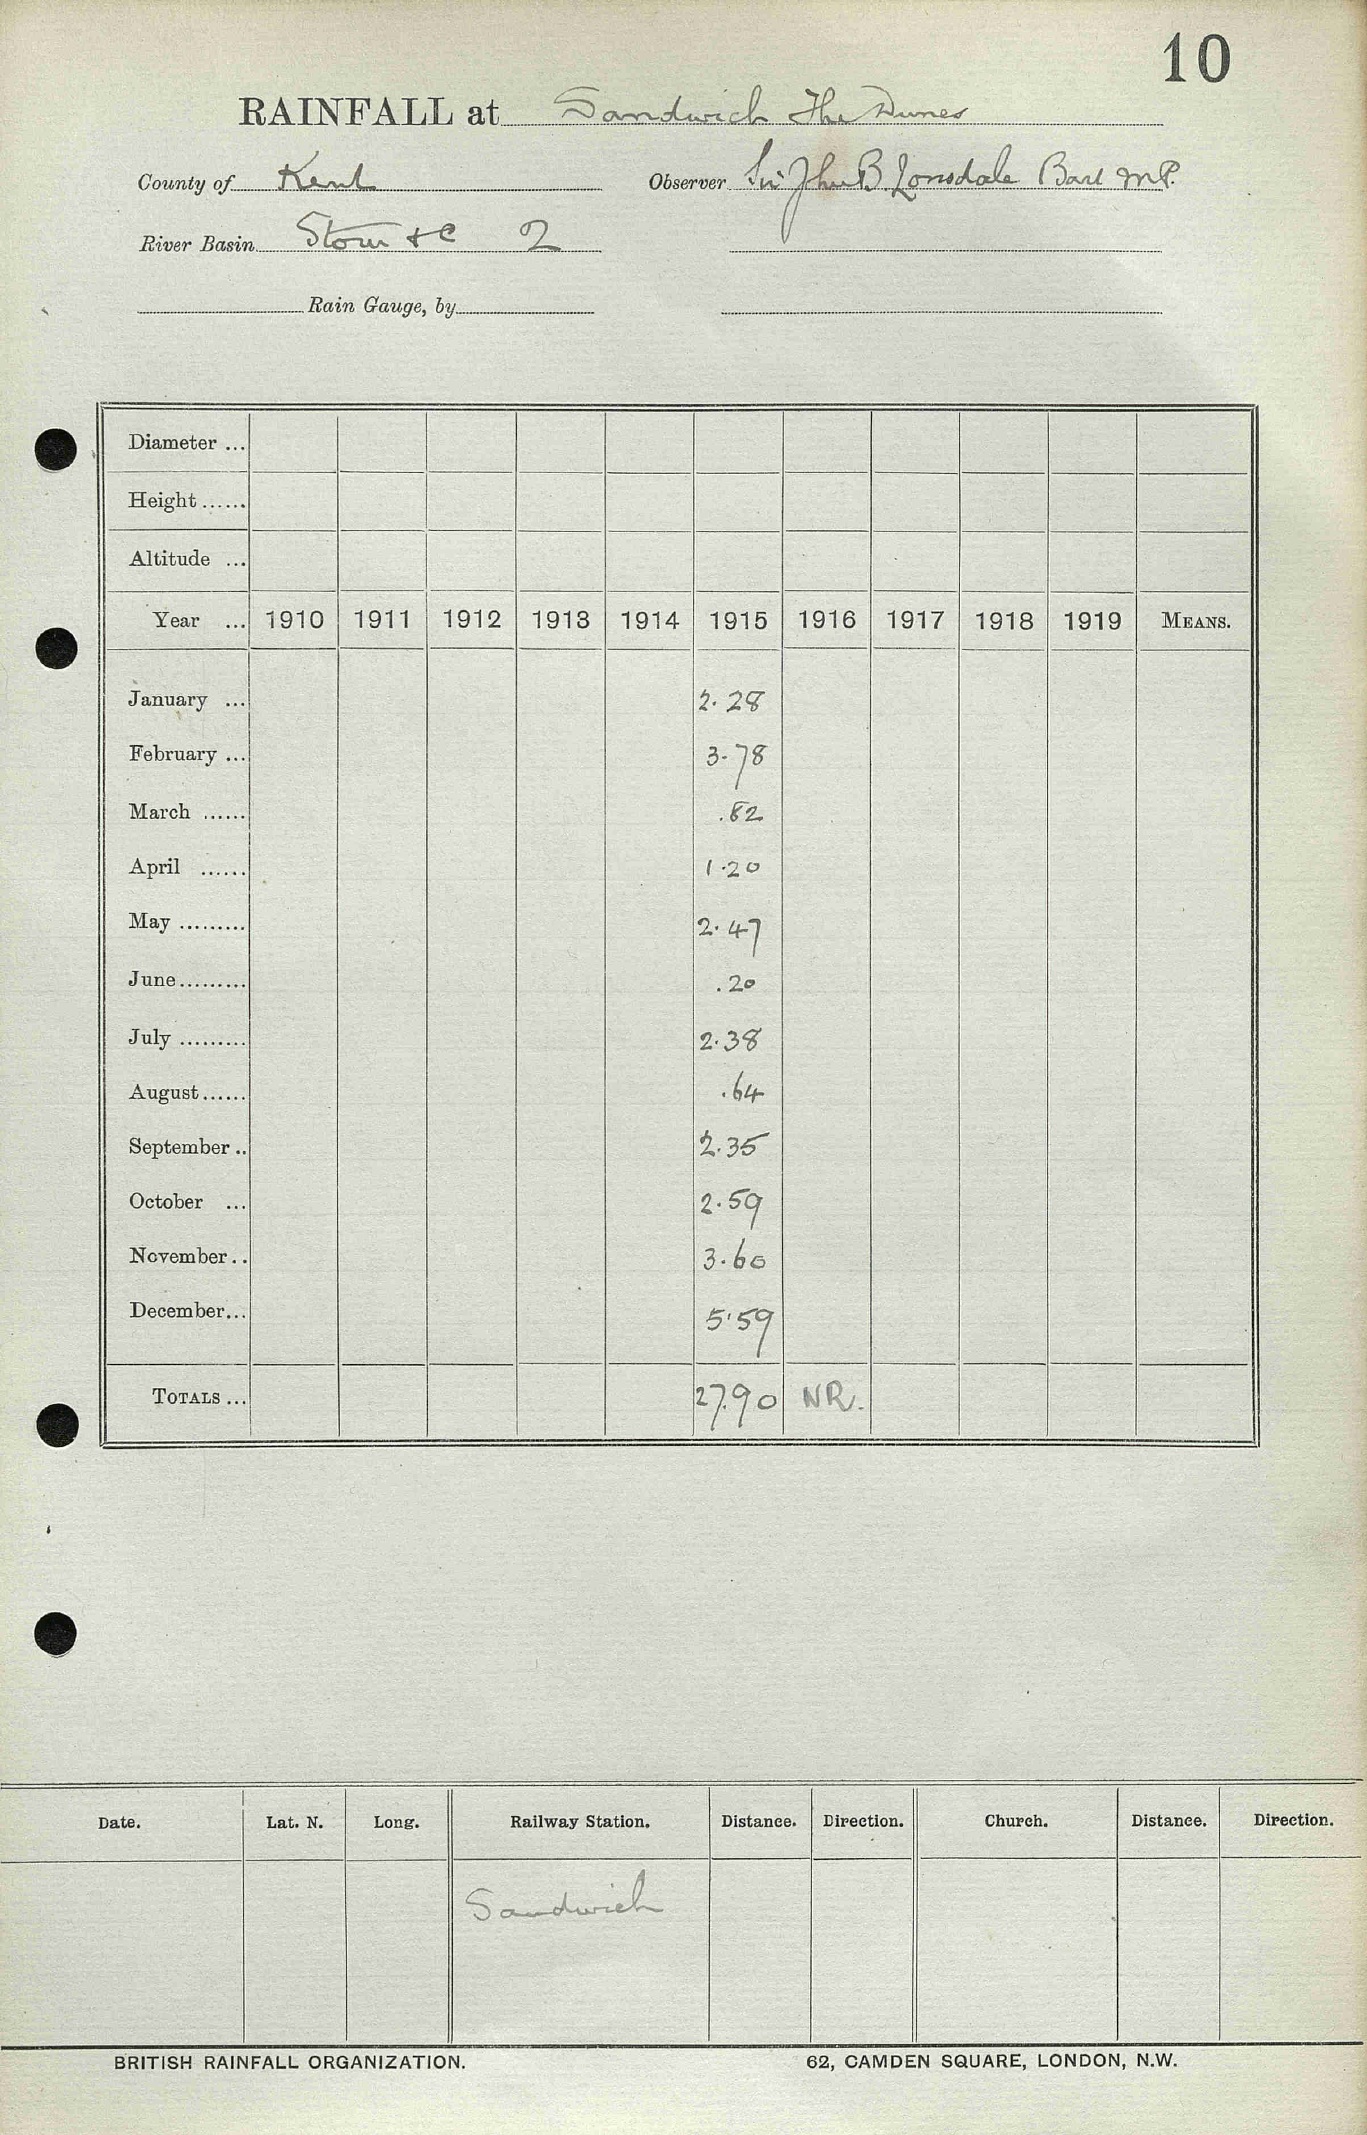 10
RAINFALL at Sandwich The Dunes
County of Kent Observer Sir John B. Lonsdale Bart M.P.
River Basin Stour &c 2
Rain Gauge, by
Diameter ...
Height ......
Altitude ...
Year ... 1910 1911 1912 1913 1914 1915 1916 1917 1918 1919 MEANS.
January ... 2.28
February ... 3.78
March ...... .82
April ...... 1.20
May ......... 2.47
June ......... .20
July ......... 2.38
August ...... .64
September .. 2.35
October ... 2.59
November .. 3.60
December ... 5.59
TOTALS ... 27.90 NR.
Date. Lat. N. Long. Railway Station. Distance. Direction. Church. Distance. Direction.
Sandwich
BRITISH RAINFALL ORGANIZATION. 62, CAMDEN SQUARE, LONDON, N.W.